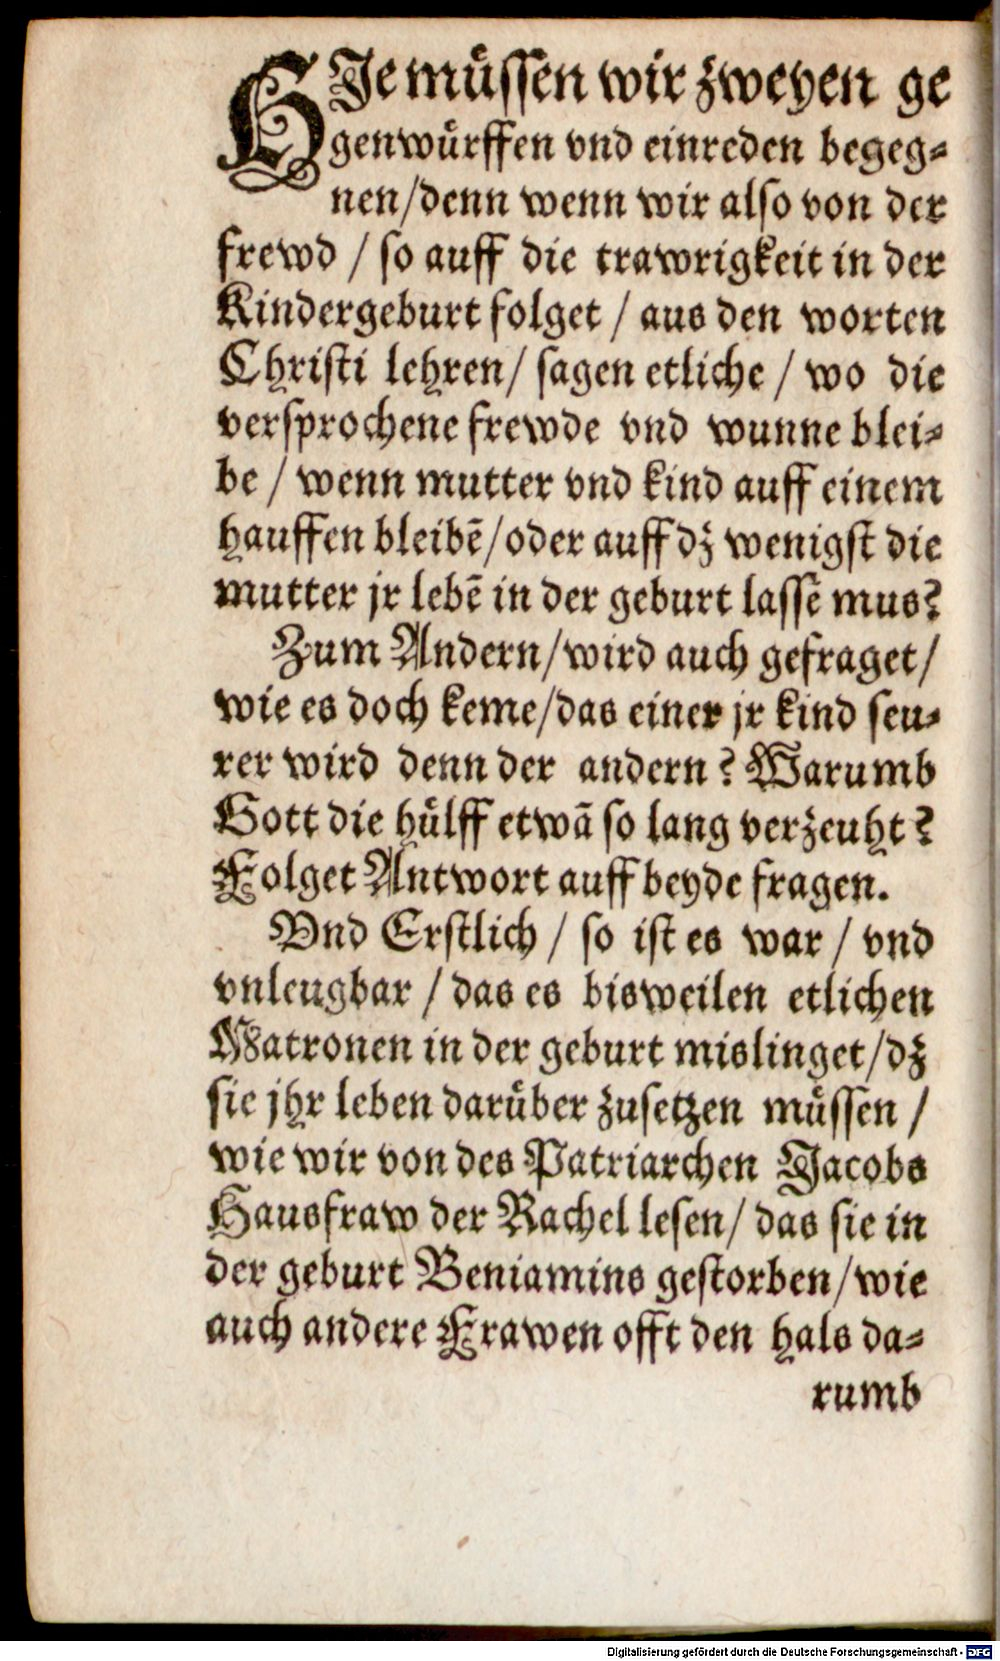 HJe müssen wir zweyen ge
genwürffen vnd einreden begeg⸗
nen/denn wenn wir also von der
frewd / so auff die trawrigkeit in der
Kindergeburt folget / aus den worten
Christi lehren/ sagen etliche / wo die
versprochene frewde vnd wunne blei⸗
be / wenn mutter vnd kind auff einem
hauffen bleibē/oder auff dz wenigst die
mutter jr lebē in der geburt lassē mus?
Zum Andern/wird auch gefraget/
wie es doch keme/das einer jr kind seu⸗
rer wird denn der andern? Warumb
Gott die hülff etwā so lang verzeuht?
Folget Antwort auff beyde fragen.
Vnd Erstlich / so ist es war / vnd
vnleugbar / das es bisweilen etlichen
Matronen in der geburt mislinget/dz
sie jhr leben darüber zusetzen müssen /
wie wir von des Patriarchen Jacobs
Hausfraw der Rachel lesen/ das sie in
der geburt Beniamins gestorben/wie
auch andere Frawen offt den hals da⸗
rumb
Digitalisierung gefördert durch die Deutsche Forschungsgemeinschaft - DFG